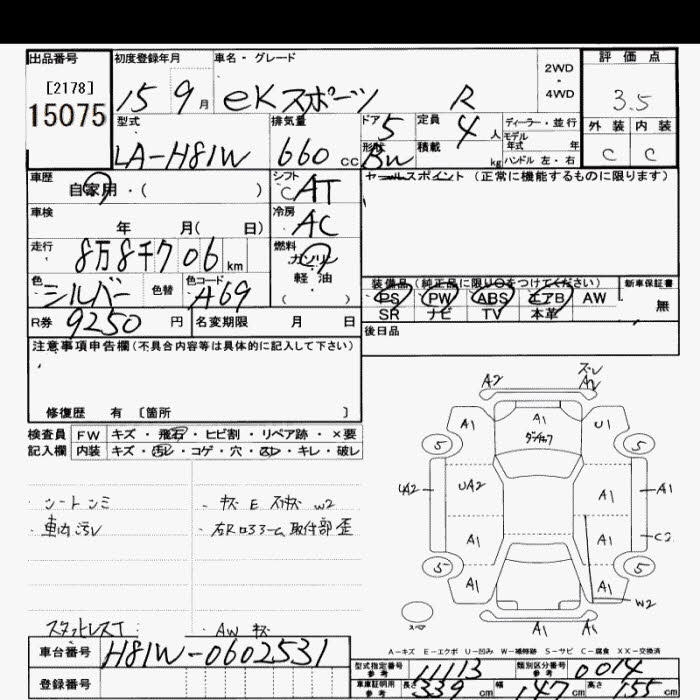 出品番号 初度登録年月 車名・グレード 2WD・4WD 評価点
[2178]
15075 15 9月 eKスポーツ R 3.5
型式 排気量 ドア 5 定員 4人 ディーラー・並行 外装 内装
LA-H81W 660cc 形状 BW 積載 kg モデル年式 年 ハンドル 左・右 C C
車歴 自家用・( ) シフト CAT セールスポイント (正常に機能するものに限ります)
車検 年 月( 日) 冷房 AC
走行 8万8千706km 燃料 ガソリン
軽油
( )
色 シルバー 色替 色コード A69 装備品(純正品に限り○をつけてください) 新車保証書
PS PW ABS エアB AW 無
SR ナビ TV 本革
R券 9250円 名変期限 月 日 後日品
注意事項申告欄(不具合内容等は具体的に記入して下さい)
修復歴 有 〔箇所 〕
検査員 FW キズ・飛石・ヒビ割・リペア跡・×要
記入欄 内装 キズ・汚レ・コゲ・穴・スレ・キレ・破レ
・シートシミ ・キズ E スリキズ W2
・車内汚レ ・右Rロアアーム取付部歪
スタッドレスT ・AW キズ
A2 ズレ A2
A1 A1 ダンチョウ U1
5 5
UA2 UA2 A1 A1
A1 A1 C2
5 A1 A1 5
W2
スペア A1 A1
A-キズ E-エクボ U-凹み W-補修跡 S-サビ C-腐食 XX-交換済
車台番号 H81W-0602531
型式指定番号 参考 11113 類別区分番号 参考 0014
登録番号 車庫証明用 参考 長さ 339cm 幅 147cm 高さ 155cm